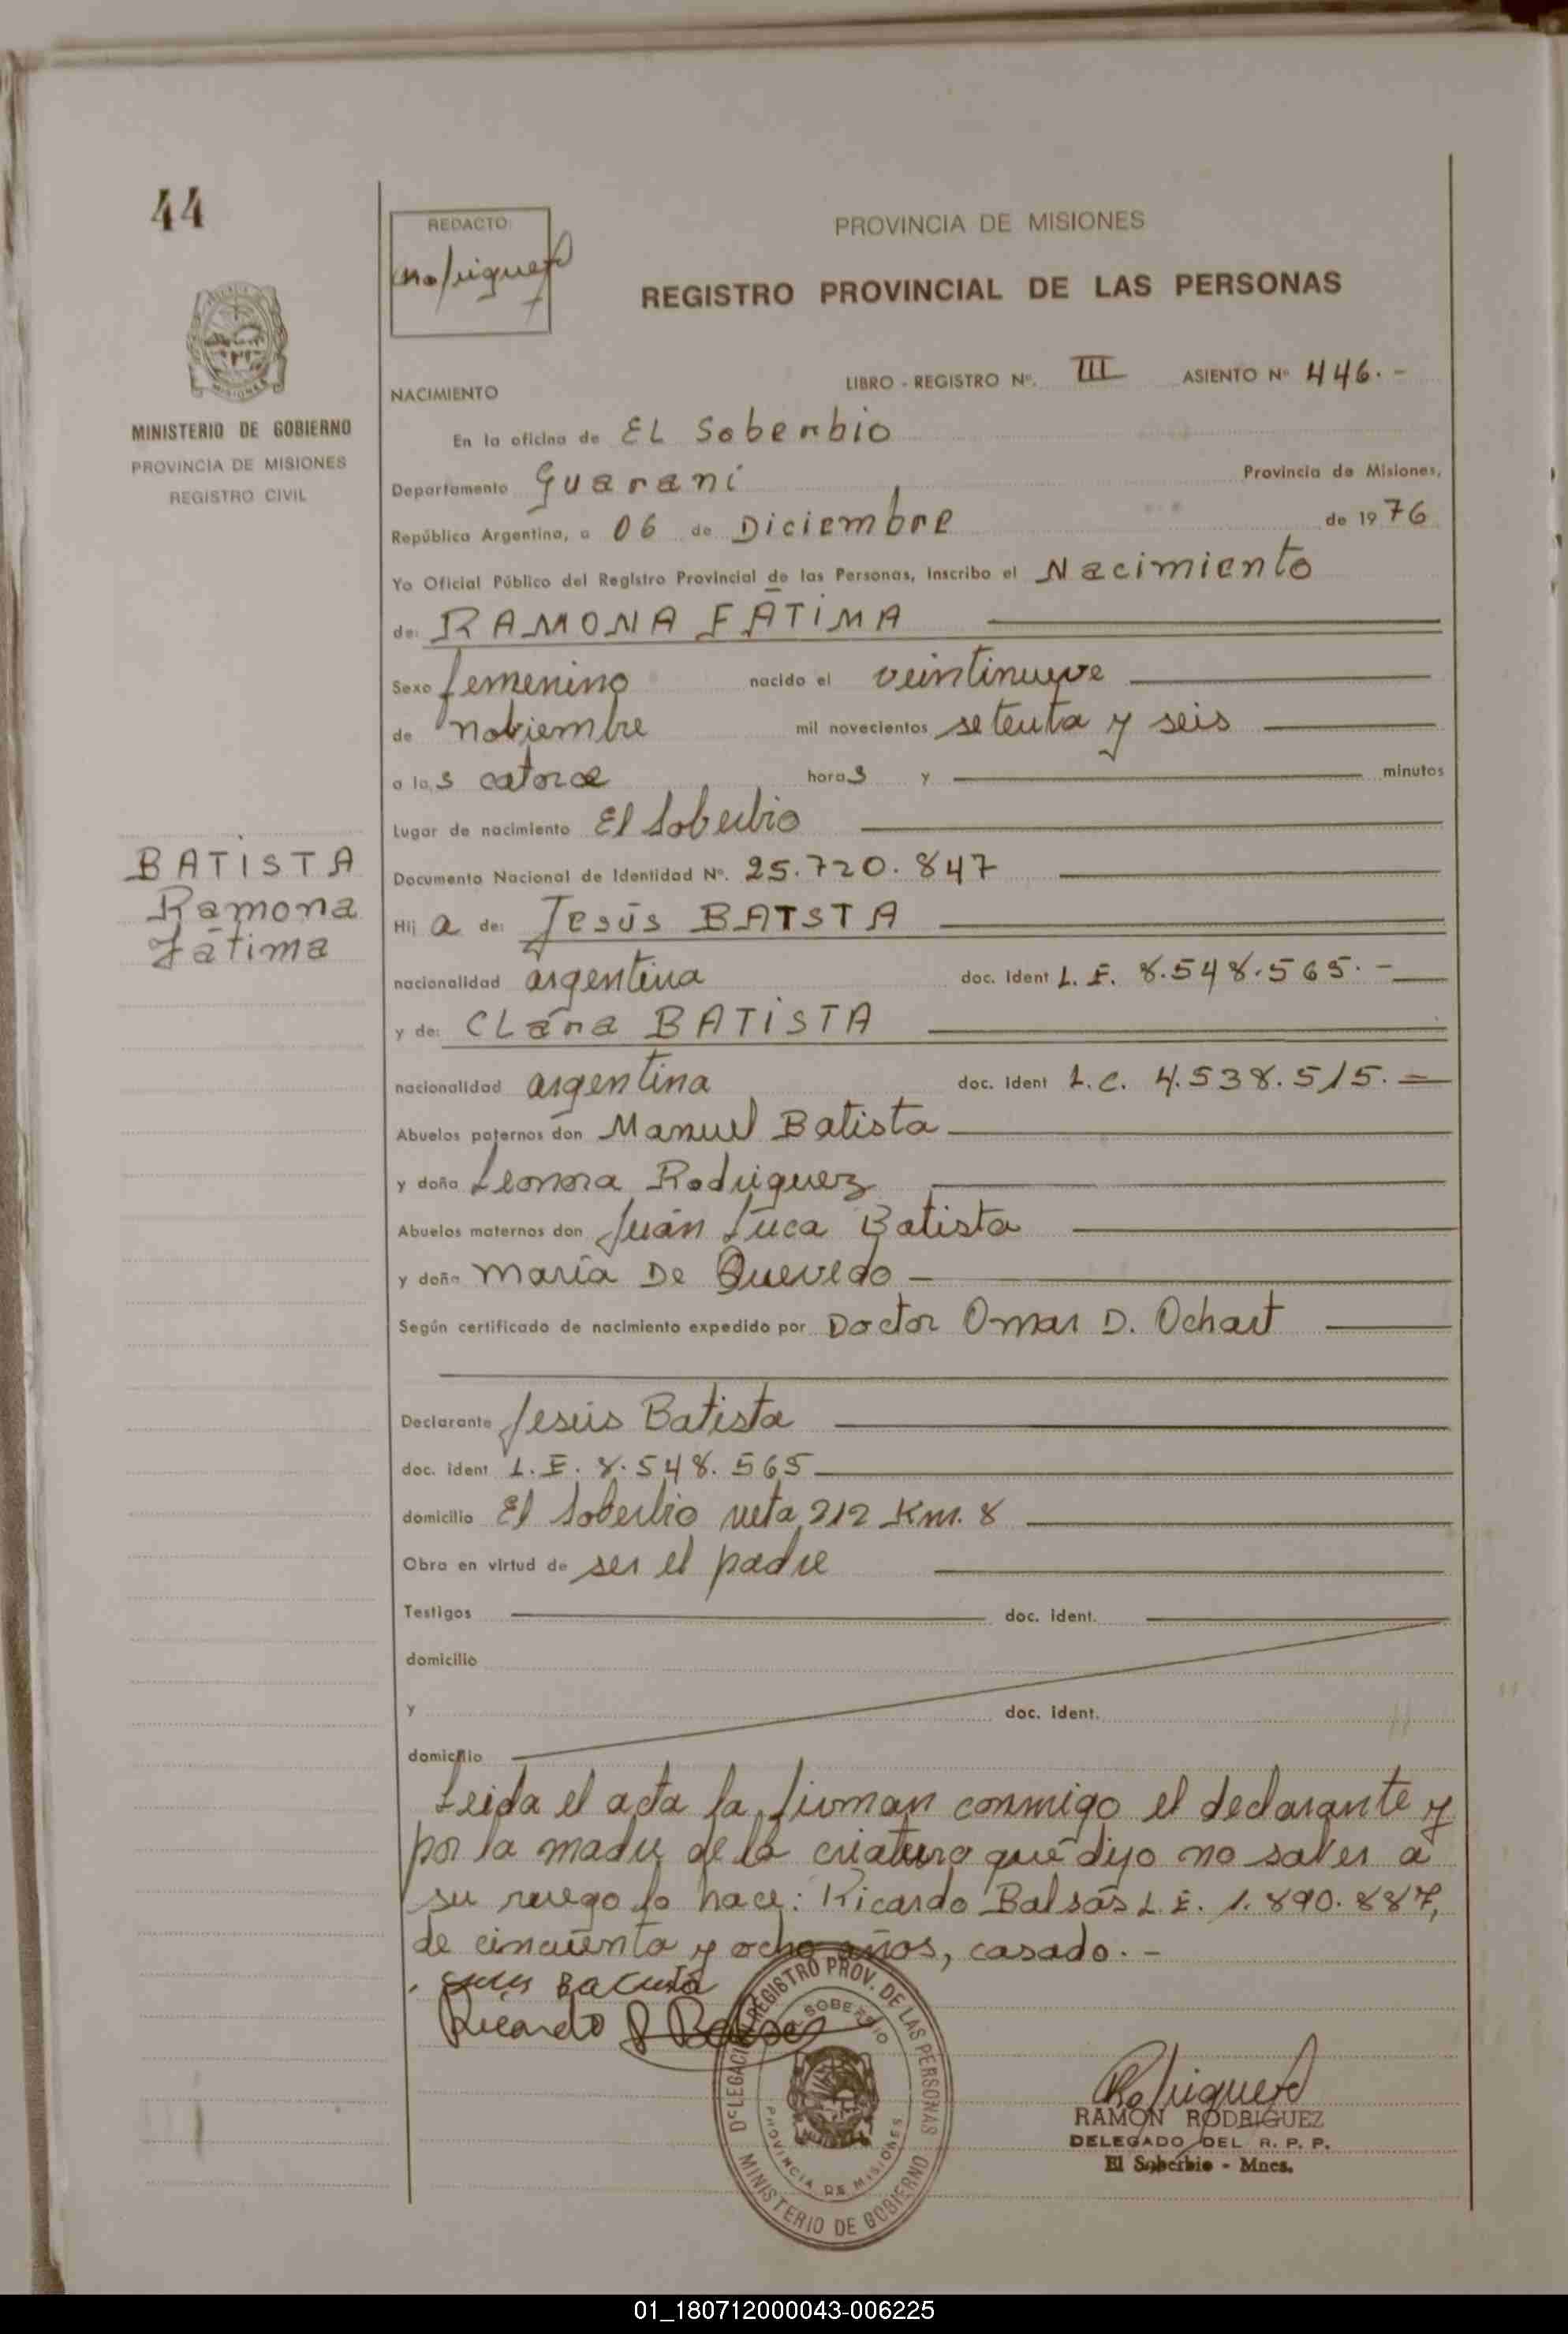 44
REDACTO:
PROVINCIA DE MISIONES
REGISTRO PROVINCIAL DE LAS PERSONAS
MINISTERIO DE GOBIERNO
PROVINCIA DE MISIONES
REGISTRO CIVIL
LIBRO - REGISTRO Nº. III ASIENTO Nº 446. -
NACIMIENTO
En la oficina de EL Soberbio
Departamento Guaraní Provincia de Misiones,
República Argentina, a 06 de Diciembre de 19 76
Yo Oficial Público del Registro Provincial de las Personas, inscribo el Nacimiento
de: RAMONA FÁTIMA
Sexo femenino nacido el veintinueve
de nobiembre mil novecientos setenta y seis
a las catorce horas y minutos
Lugar de nacimiento El Soberbio
Documento Nacional de Identidad Nº. 25.720.847
BATISTA
Ramona
Fátima
Hij a de: Jesús BATSTA
nacionalidad argentina doc. ident L. E. 8.548.565. -
y de: CLara BATISTA
nacionalidad argentina doc. ident L.C. 4.538.515. =
Abuelos paternos don Manuel Batista
y doña Leonora Rodriguez
Abuelos maternos don Juán Luca Batista
y doña María De Quevedo
Según certificado de nacimiento expedido por Doctor Omar D. Ochart
Declarante Jesús Batista
doc. ident L. E. 8.548.565
domicilio El Soberbio ruta 212 Km. 8
Obra en virtud de ser el padre
Testigos doc. ident.
domicilio
y doc. ident.
domicilio
Leida el acta la firman conmigo el declarante y
por la madre de la criatura que dijo no saber a
su ruego lo hace: Ricardo Balsás L.E. 1.890.887,
de cincuenta y ocho años, casado. -
Ricardo
DELEGACION REGISTRO PROV. DE LAS PERSONAS
SOBERBIO
PROVINCIA DE MISIONES
MINISTERIO DE GOBIERNO
RAMON RODRIGUEZ
DELEGADO DEL R. P. P.
El Soberbio - Mnes.
01_180712000043-006225